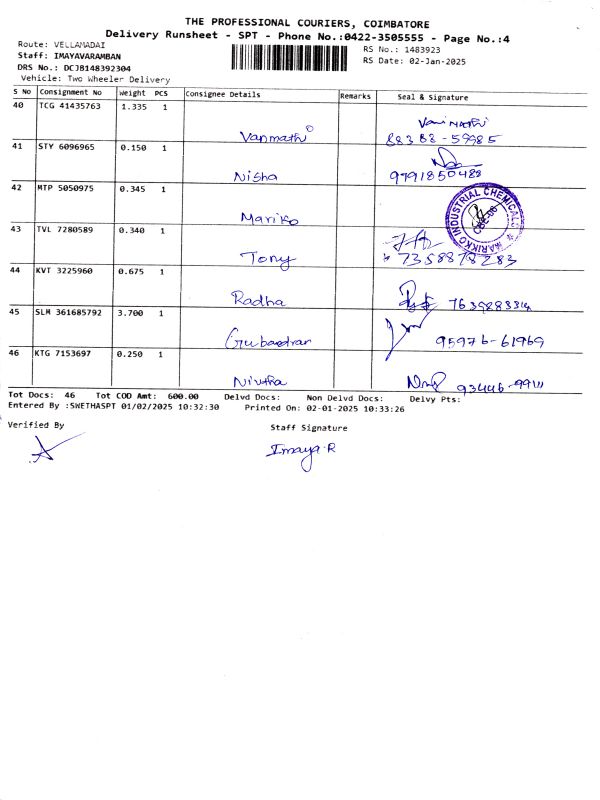 THE PROFESSIONAL COURIERS, COIMBATORE
Delivery Runsheet - SPT - Phone No.:0422-3505555 - Page No.:4
Route: VELLAMADAI
Staff: IMAYAVARAMBAN
DRS No.: DCJB148392304
Vehicle: Two Wheeler Delivery
RS No.: 1483923
RS Date: 02-Jan-2025
S No Consignment No Weight PCS Consignee Details Remarks Seal & Signature
40 TCG 41435763 1.335 1 Vanmathi Vanmathi
88388-59985
41 STY 6096965 0.150 1 Nisha 9791850488
42 MTP 5050975 0.345 1 Mariko MARIKKO INDUSTRIAL CHEMICALS CBE-06
43 TVL 7280589 0.340 1 Tony 7358878283
44 KVT 3225960 0.675 1 Radha 7639883314
45 SLM 361685792 3.700 1 95976-61969
46 KTG 7153697 0.250 1 Nivtha 93446-99111
Tot Docs: 46 Tot COD Amt: 600.00 Delvd Docs: Non Delvd Docs: Delvy Pts:
Entered By :SWETHASPT 01/02/2025 10:32:30 Printed On: 02-01-2025 10:33:26
Verified By
Staff Signature
Imaya.R